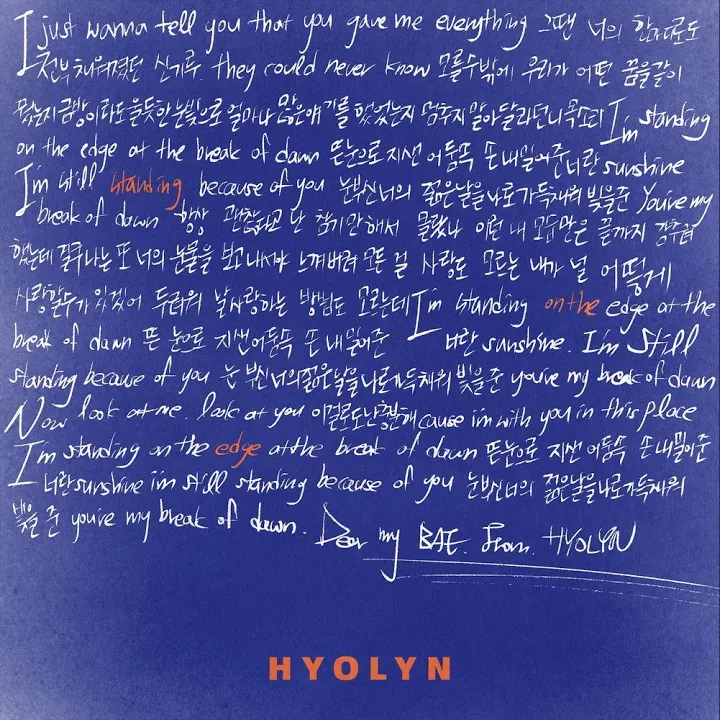 I just wanna tell you that you gave me everything 그땐 너의 한마디로도
전부 채워졌던 신기루. they could never know 모를수밖에 우리가 어떤 꿈을같이
꿨는지 금방이라도 울듯한 눈빛으로 얼마나 많은얘기를 했었는지 멈추지 말아달라던니목소리 I'm standing
on the edge at the break of dawn 뜬눈으로 지샌 어둠속 손 내밀어준 너란 sunshine
I'm still standing because of you 눈부신너의 젊은날을나로가득채워 빛을준 You're my
break of dawn 항상 괜찮다고 난 참기만해서 몰랐나 이런 내 모습만은 끝까지 감추려
했는데 결국나는 또 너의 눈물을 보고내서야 느껴버려 모든 걸 사랑도 모르는 내가 널 어떻게
사랑할수가 있겠어 두려워 날사랑하는 방법도 모르는데 I'm standing on the edge at the
break of dawn 뜬 눈으로 지샌어둠속 손 내밀어준 너란 sunshine. I'm still
standing because of you 눈 부신너의젊은날을나로가득채워 빛을준 you're my break of dawn
Now look at me. look at you 이걸로도난괜찮해 cause i'm with you in this place
I'm standing on the edge at the break of dawn 뜬눈으로 지샌 어둠속 손내밀어준
너란 sunshine i'm still standing because of you 눈부신너의 젊은날을나로가득채워
빛을 준 you're my break of dawn. Dear my BAE. From. HYOLYN
HYOLYN